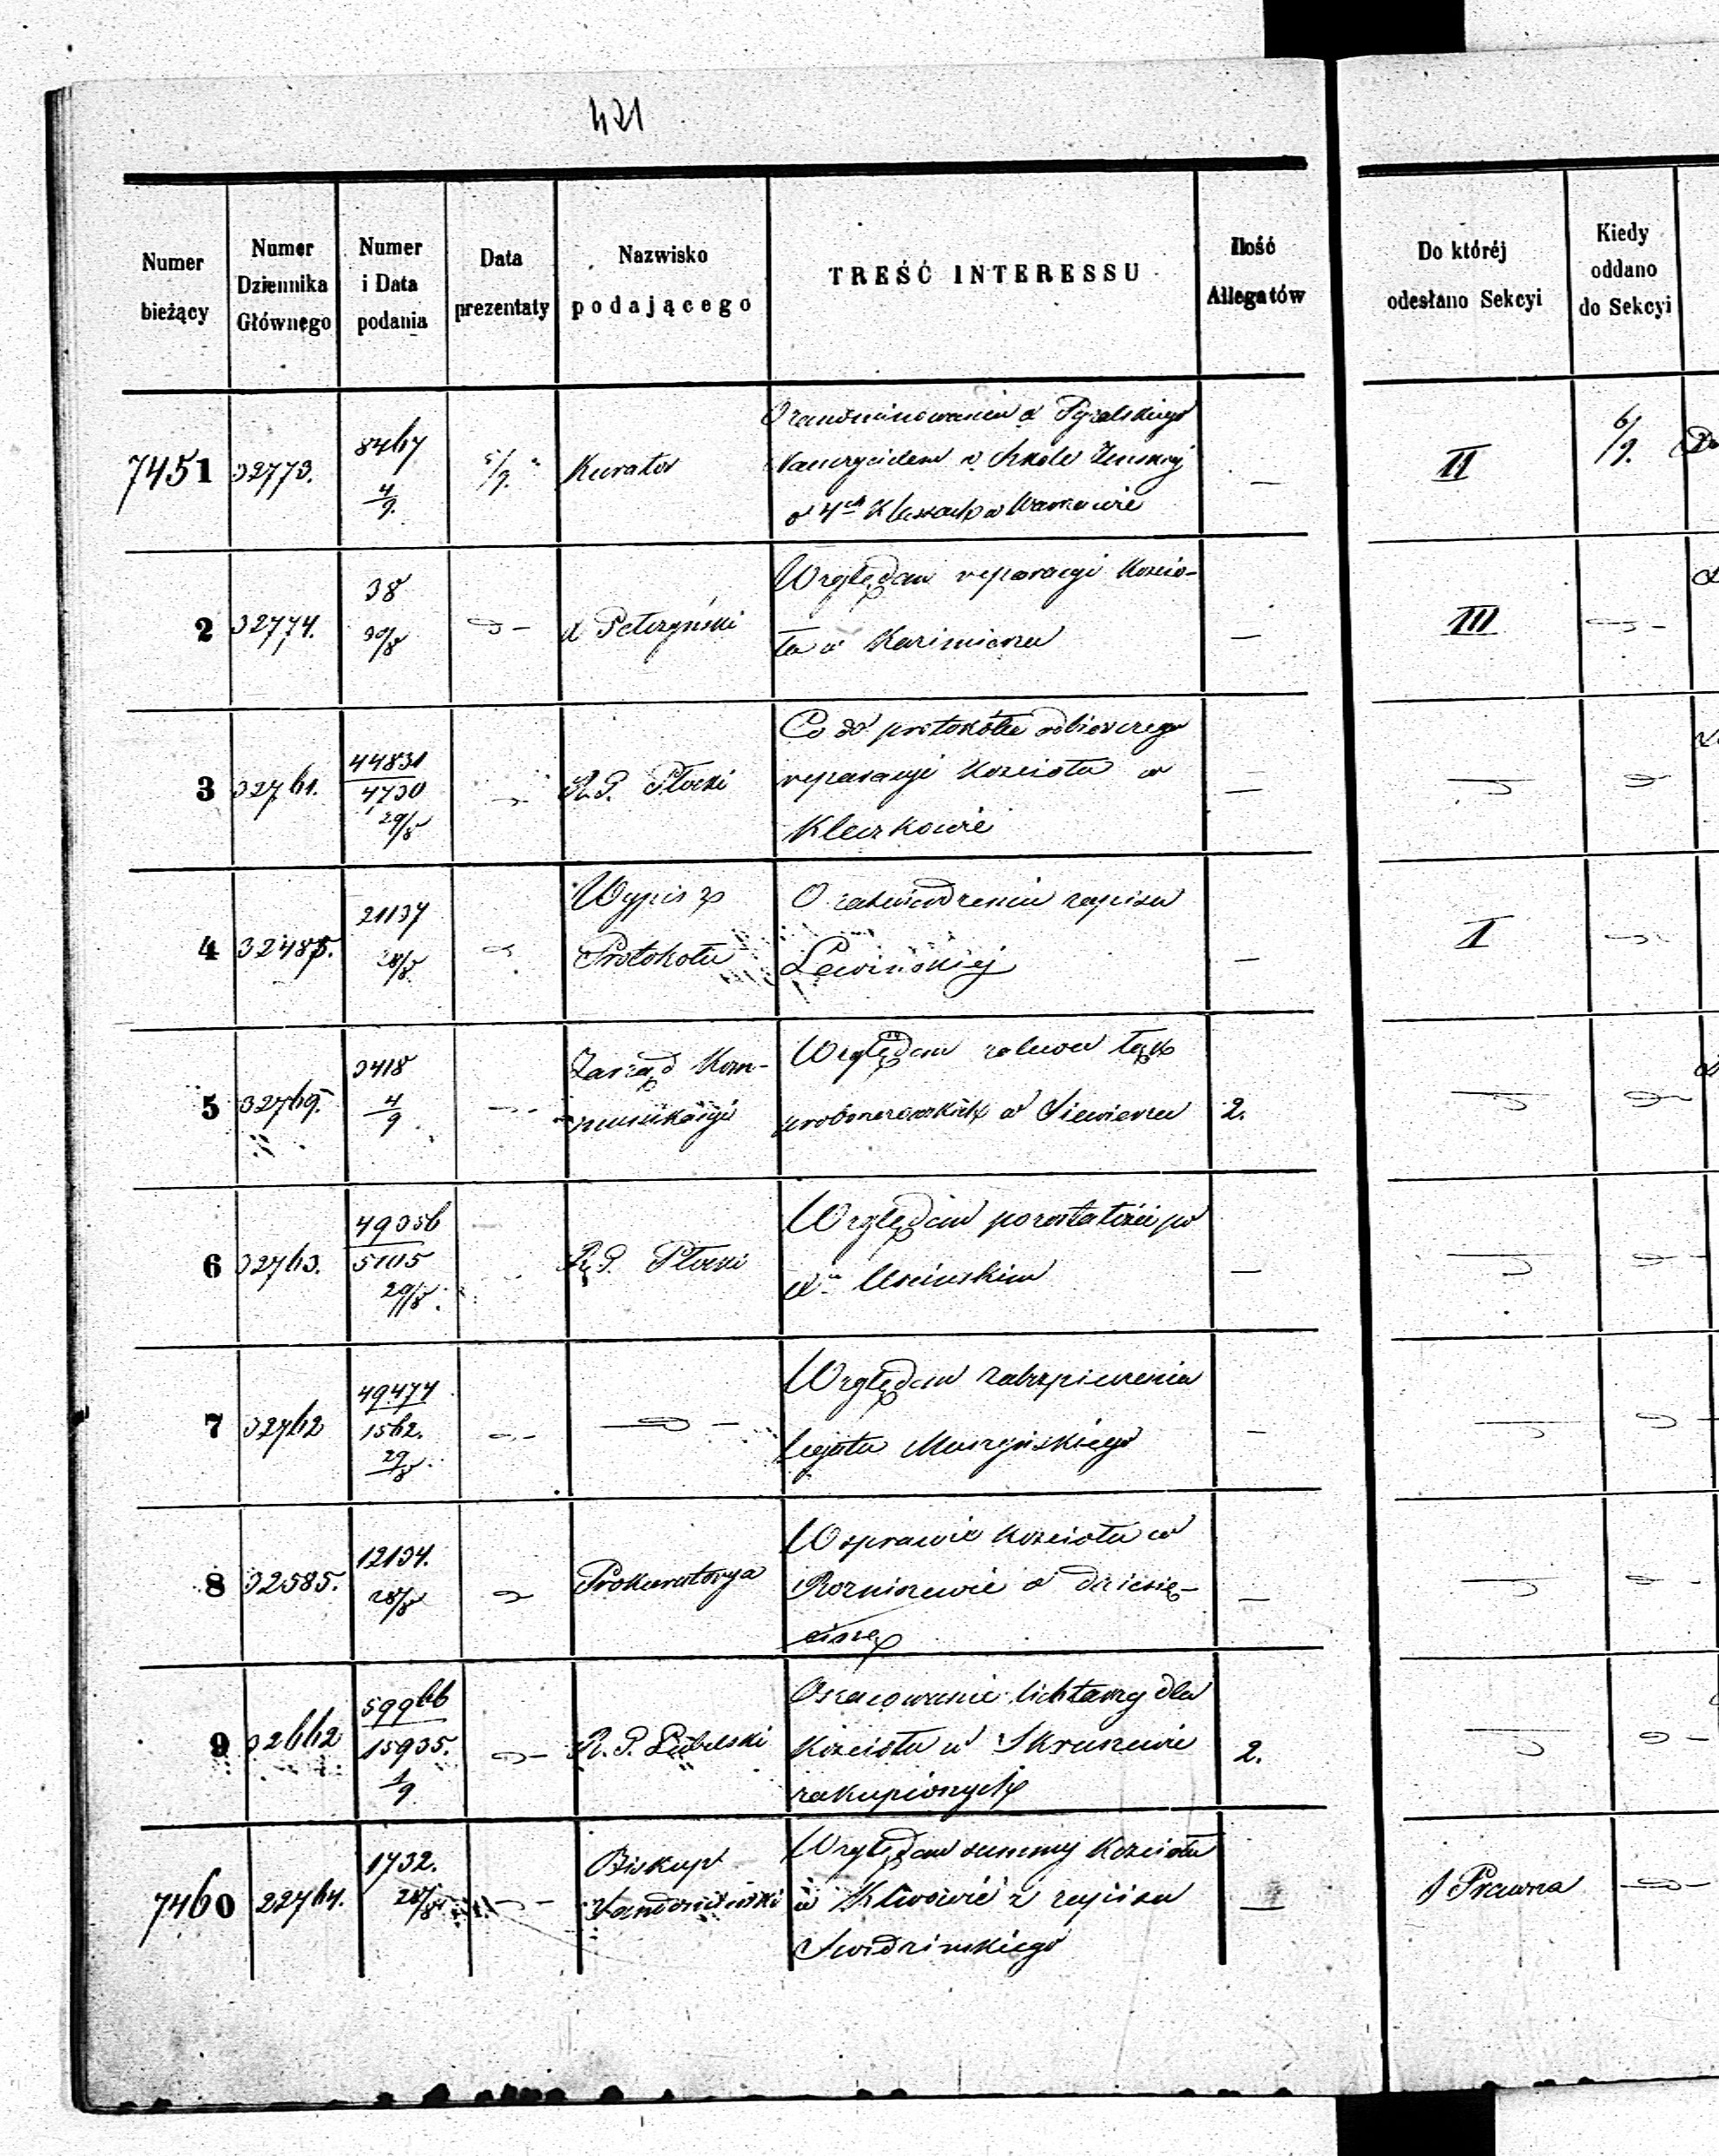 421
Numer bieżący | Numer Dziennika Głównego | Numer i Data podania | Data prezentaty | Nazwisko podającego | TREŚĆ INTERESSU | Ilość Allegatów | Do któréj odesłano Sekcyi | Kiedy oddano do Sekcyi
7451 | 32773. | 8467 4/9. | 5/9. | Kurator | O zanominowaniu X Pyzalskiego
Nauczycielem w Szkole Żeńskiej
o 4ch Klassach w Warszawie | — | II | 6/9.
2 | 32774. | 38 30/8 | X Petrzyński | Względem reparacyi Kościo-
ła w Kazimierzu | — | III
3 | 32761. | 44831/4730 29/8 | R. G. Płocki | Co do protokółu odbiorczego
reparacyi Kościoła w
Kleczkowie | —
4 | 32485. | 21137 28/8 | Wypis z
Protokołu | O zatwierdzeniu zapisu
Lewińskiej | — | I
5 | 32769. | 3418 4/9 | Zarząd Kom-
munikacyi | Względem zalewu łąk
proboszczowskich w Siewierzu | 2.
6 | 32763. | 49356/5105 29/8 | R. G. Płocki | Względem pozostałości po
Xu Uscinskim | —
7 | 32762 | 49474/1562. 29/8 | Względem zabezpieczenia
legatu Muszyńskiego | —
8 | 32585. | 12134. 28/8 | Prokuratorya | W sprawie Kościoła w
Rozniszewie o dziesię-
cinę | —
9 | 32662 | 59966/15935. 1/9 | R. G. Lubelski | Oszacowanie lichtarzy dla
Kościoła w
zakupionych | 2.
7460 | 22764. | 1732. 28/8 | Biskup
Sandomirski | Względem summy Kościoła
w Klwowie z zapisu
Swidzinskiego | — | Prawna